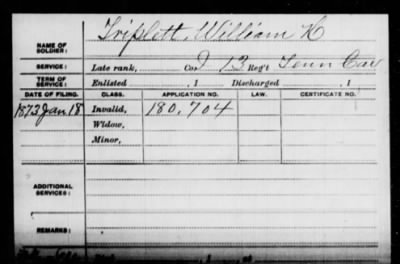 NAME OF SOLDIER: Triplett, William H
SERVICE: Late rank, Co. I 13 Reg't Tenn Cav
TERM OF SERVICE: Enlisted , 1 Discharged , 1
DATE OF FILING. CLASS. APPLICATION NO. LAW. CERTIFICATE NO.
1873 Jan 18 Invalid, 180,704
Widow,
Minor,
ADDITIONAL SERVICES:
REMARKS: